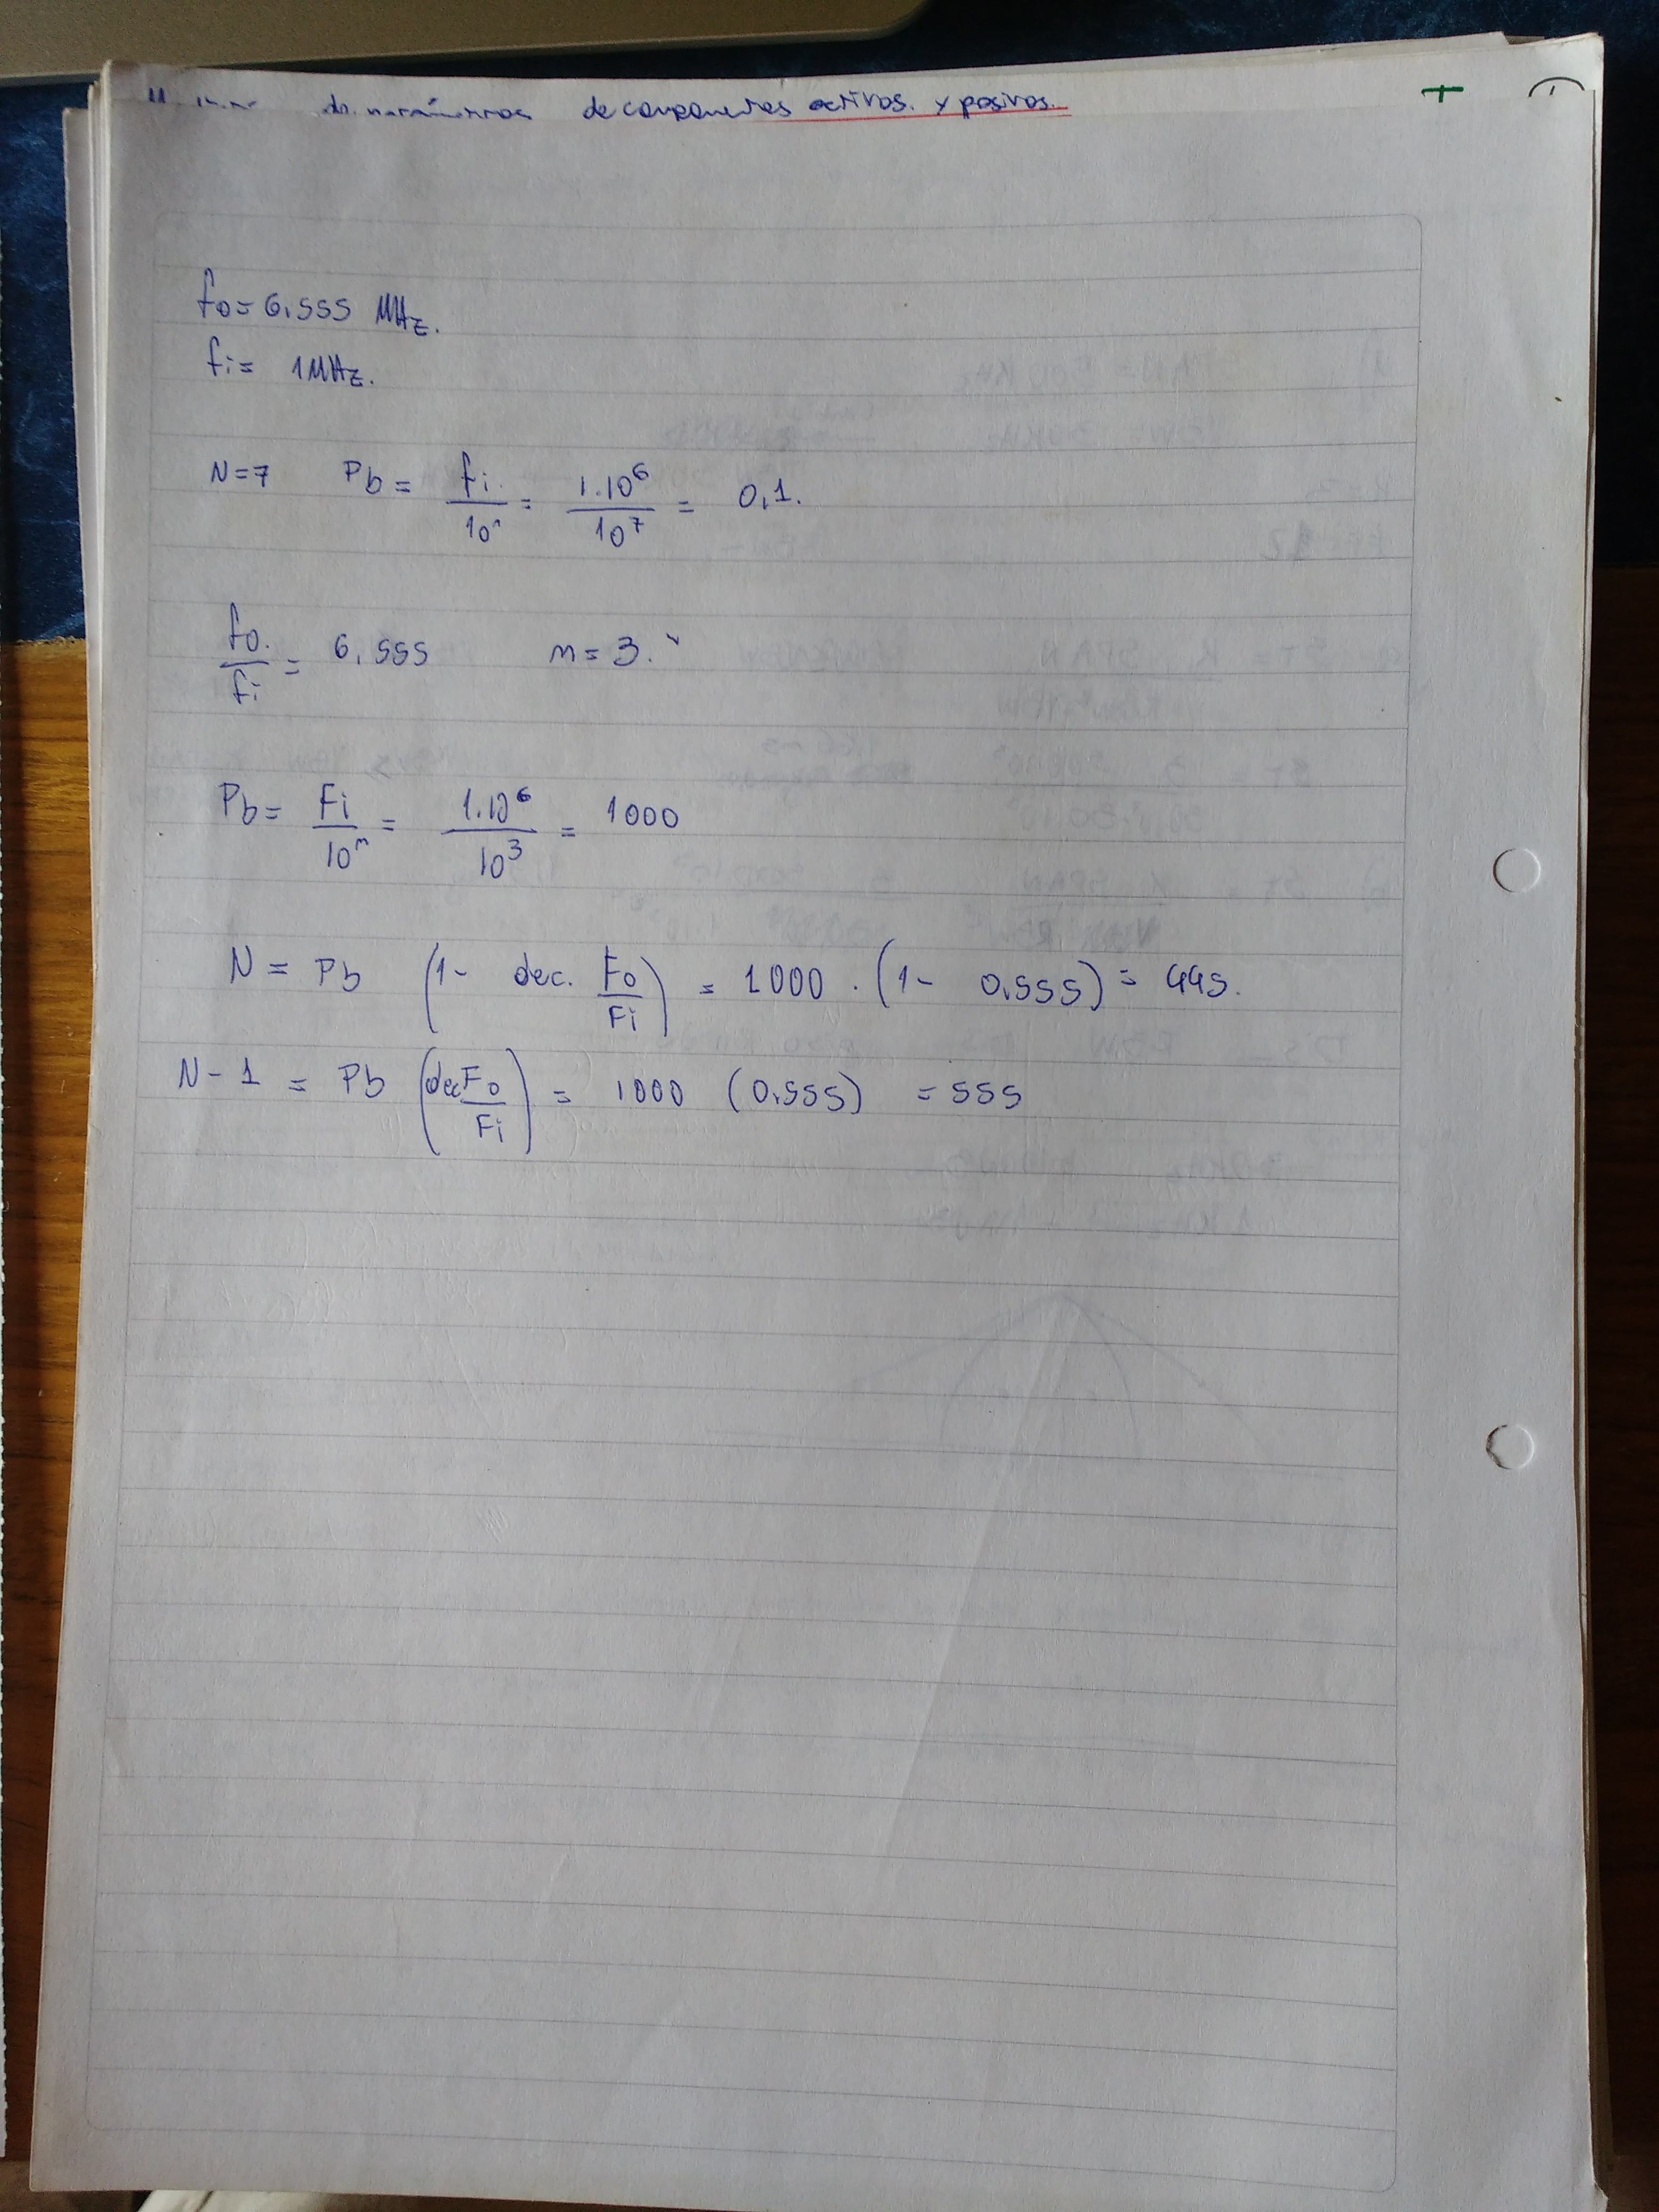 de parámetros de componentes activos. y pasivos. +
fo = 6.555 MHz.
fi = 1MHz.
N=7 Pb = fi/10ⁿ = 1.10⁶/10⁷ = 0,1.
fo./fi = 6,555 m = 3.
Pb = Fi/10ᵐ = 1.10⁶/10³ = 1000
N = Pb (1 - dec. Fo/Fi) = 1000 . (1 - 0,555) = 445.
N - 1 = Pb (dec Fo/Fi) = 1000 (0,555) = 555